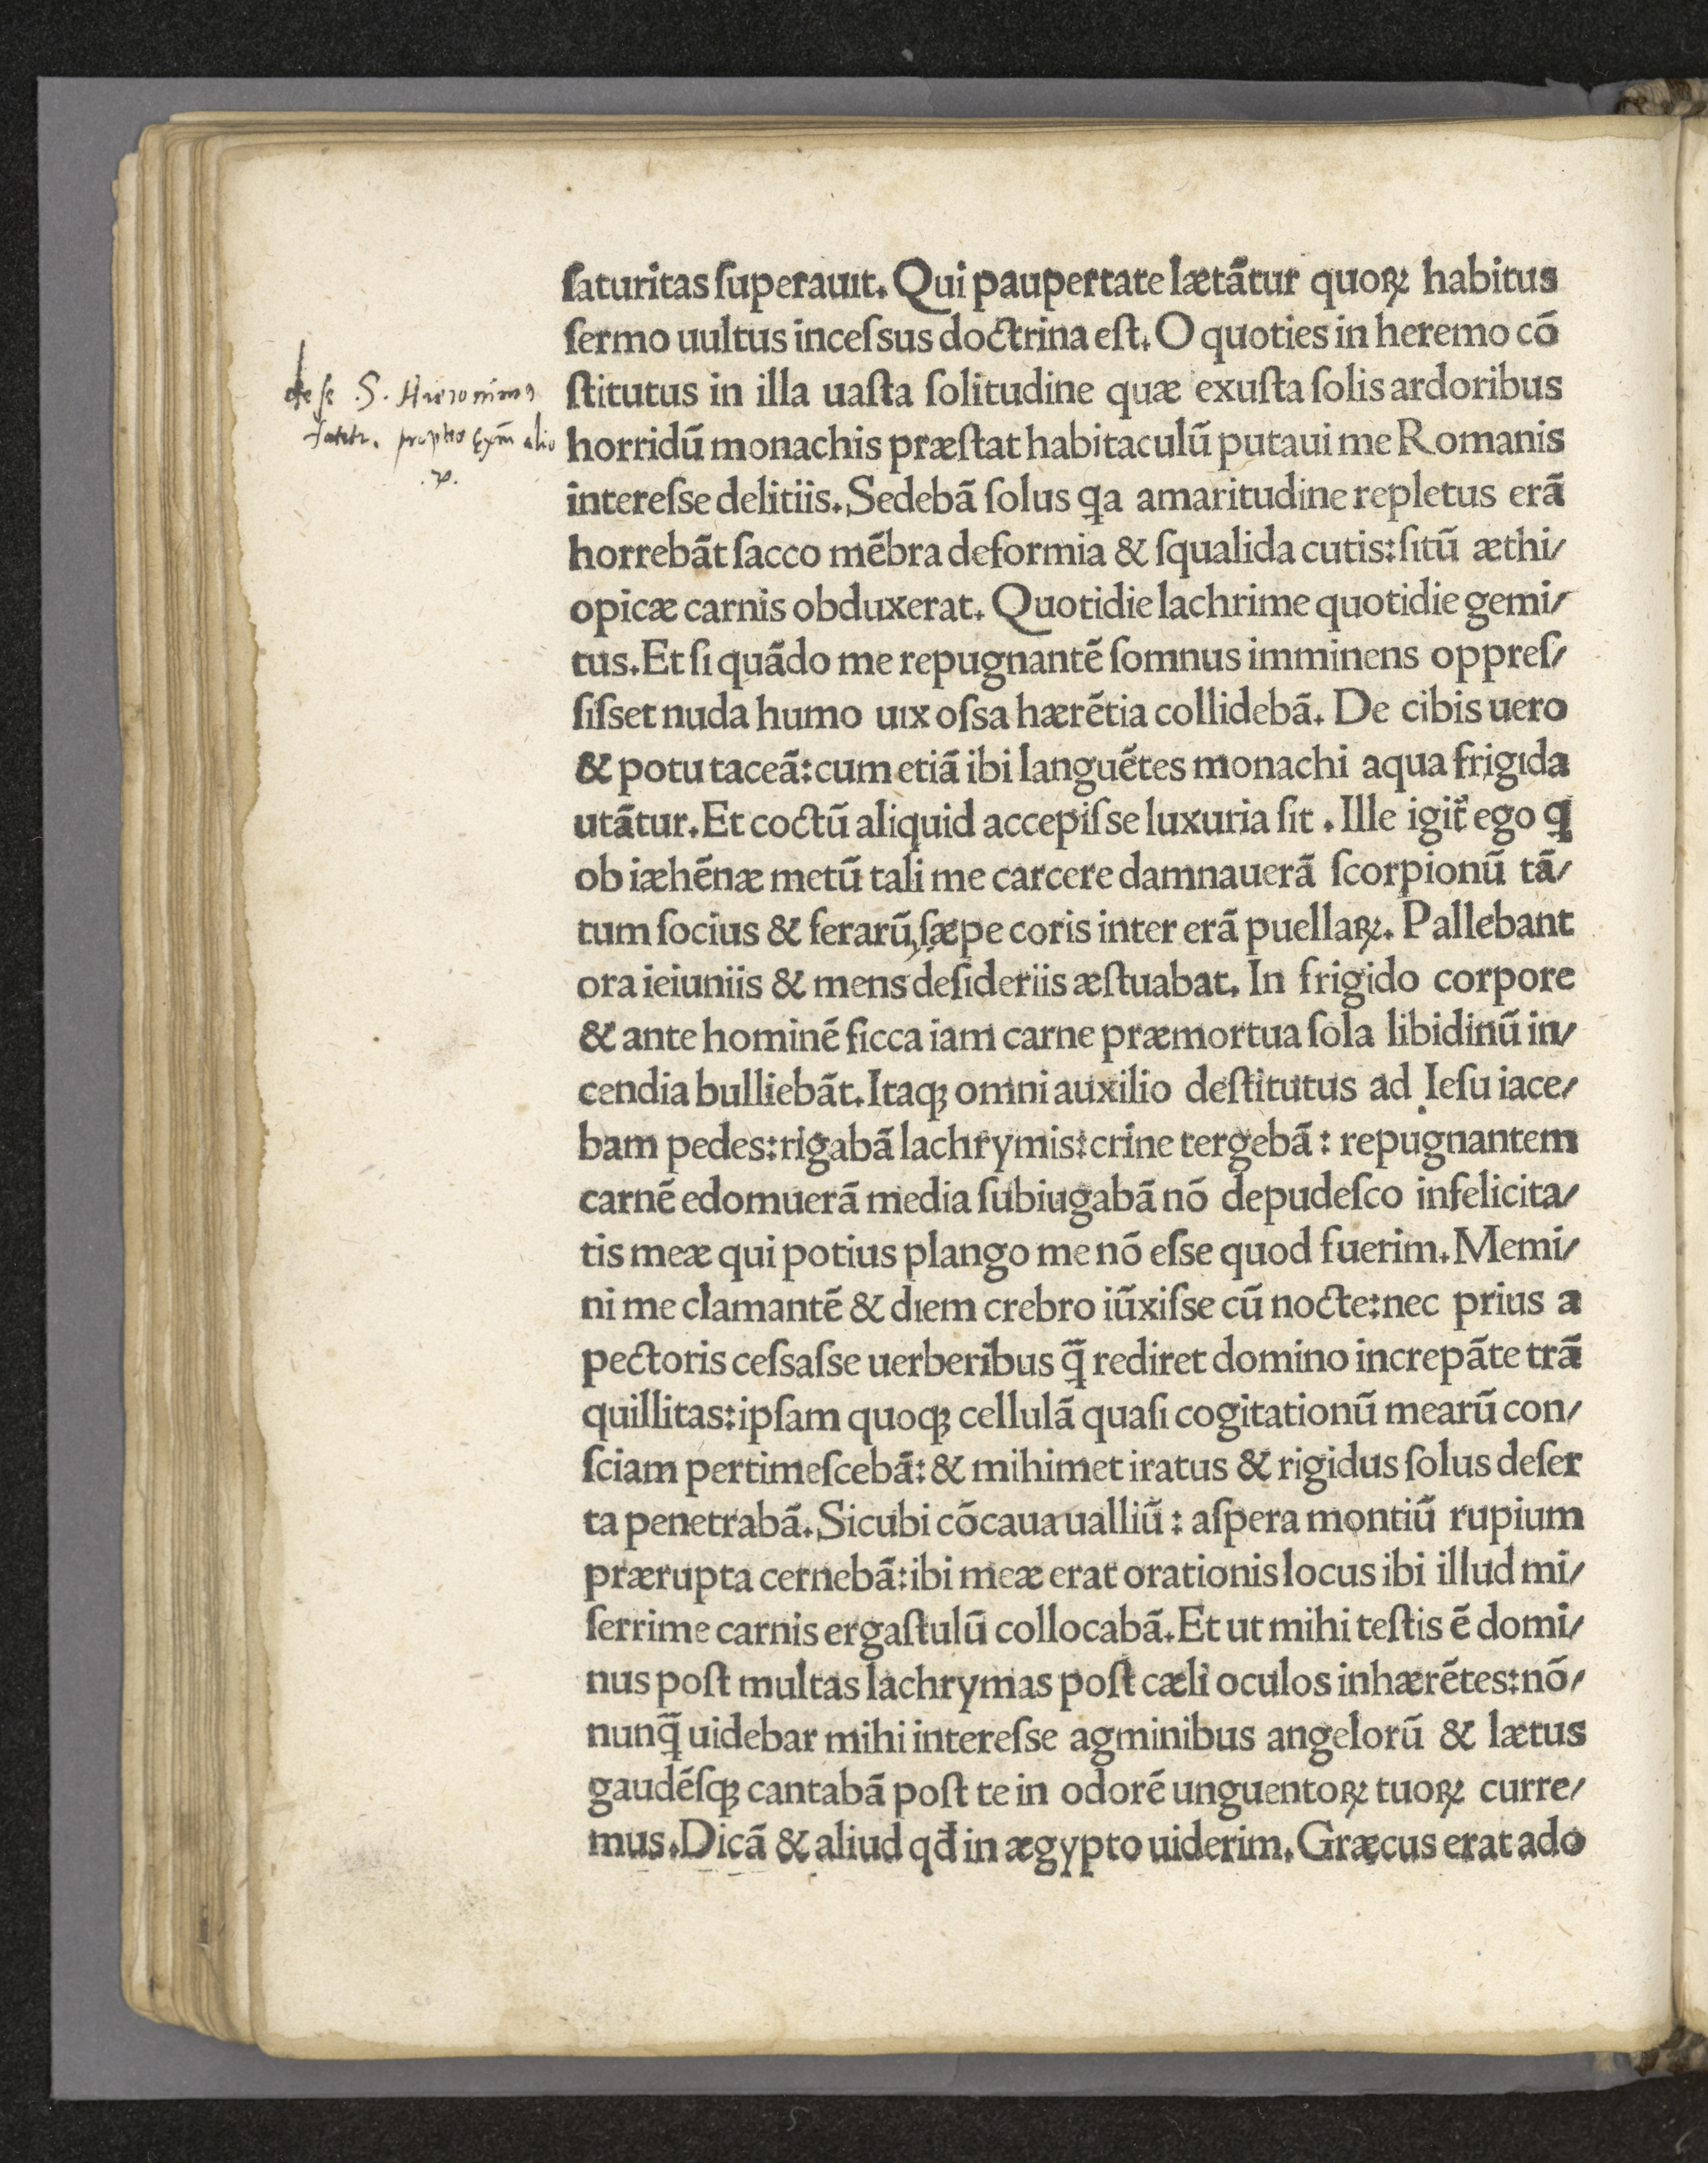 de se .S. Hieronimus
fatetr. propter exm̄ alio
.℞.
ſaturitas ſuperauıt. Qui paupertate lætãtur quoꝝ habitus
ſermo uultus inceſsus doctrina eſt. O quoties in heremo cõ
ſtitutus in illa uaſta ſolitudine quæ exuſta ſolis ardoribus
horridũ monachis præſtat habitaculũ putaui me Romanis
intereſse delitiis. Sedebã ſolus ꝗa amaritudine repletus erã
horrebãt ſacco mẽbra deformia & ſqualida cutis: ſıtũ æthi/
opicæ carnis obduxerat. Quotidie lachrime quotidie gemi/
tus. Et ſı quãdo me repugnantẽ ſomnus imminens oppreſ/
ſiſset nuda humo uıx oſsa hærẽtia collidebã. De cibis uero
& potu taceã: cum etiã ibi languẽtes monachi aqua frigıda
utãtur. Et coctũ aliquid accepiſse luxuria ſit . Ille igit̃ ego ꝗ
ob iæhẽnæ metũ tali me carcere damnauerã ſcorpionũ tã/
tum ſocius & ferarũ, ſæpe coris inter erã puellaꝝ. Pallebant
ora ieiuniis & mens deſideriis æſtuabat. In frigido corpore
& ante hominẽ ſicca iam carne præmortua ſola libidinũ in/
cendia bulliebãt. Itaqꝫ omni auxilio deſtitutus ad Ieſu iace/
bam pedes: rigabã lachrymis: crine tergebã : repugnantem
carnẽ edomuerã media ſubiugabã nõ depudeſco infelicita/
tis meæ qui potius plango me nõ eſse quod fuerim. Memi/
ni me clamantẽ & dıem crebro iũxiſse cũ nocte: nec prius a
pectoris ceſsaſse uerberibus ꝗ̃ rediret domino increpãte trã
quillitas: ipſam quoqꝫ cellulã quaſi cogitationũ mearũ con/
ſciam pertimeſcebã: & mihimet iratus & rigidus ſolus deſer
ta penetrabã. Sicubi cõcaua ualliũ : aſpera montiũ rupium
prærupta cernebã: ibi meæ erat orationis locus ibi illud mi/
ſerrime carnis ergaſtulũ collocabã. Et ut mihi teſtis ẽ domi/
nus poſt multas lachrymas poſt cæli oculos inhærẽtes: nõ/
nunꝗ̃ uidebar mihi intereſse agminibus angelorũ & lætus
gaudẽſqꝫ cantabã poſt te in odorẽ unguentoꝝ tuoꝝ curre/
mus. Dicã & aliud qđ in ægypto uiderim. Græcus erat ado